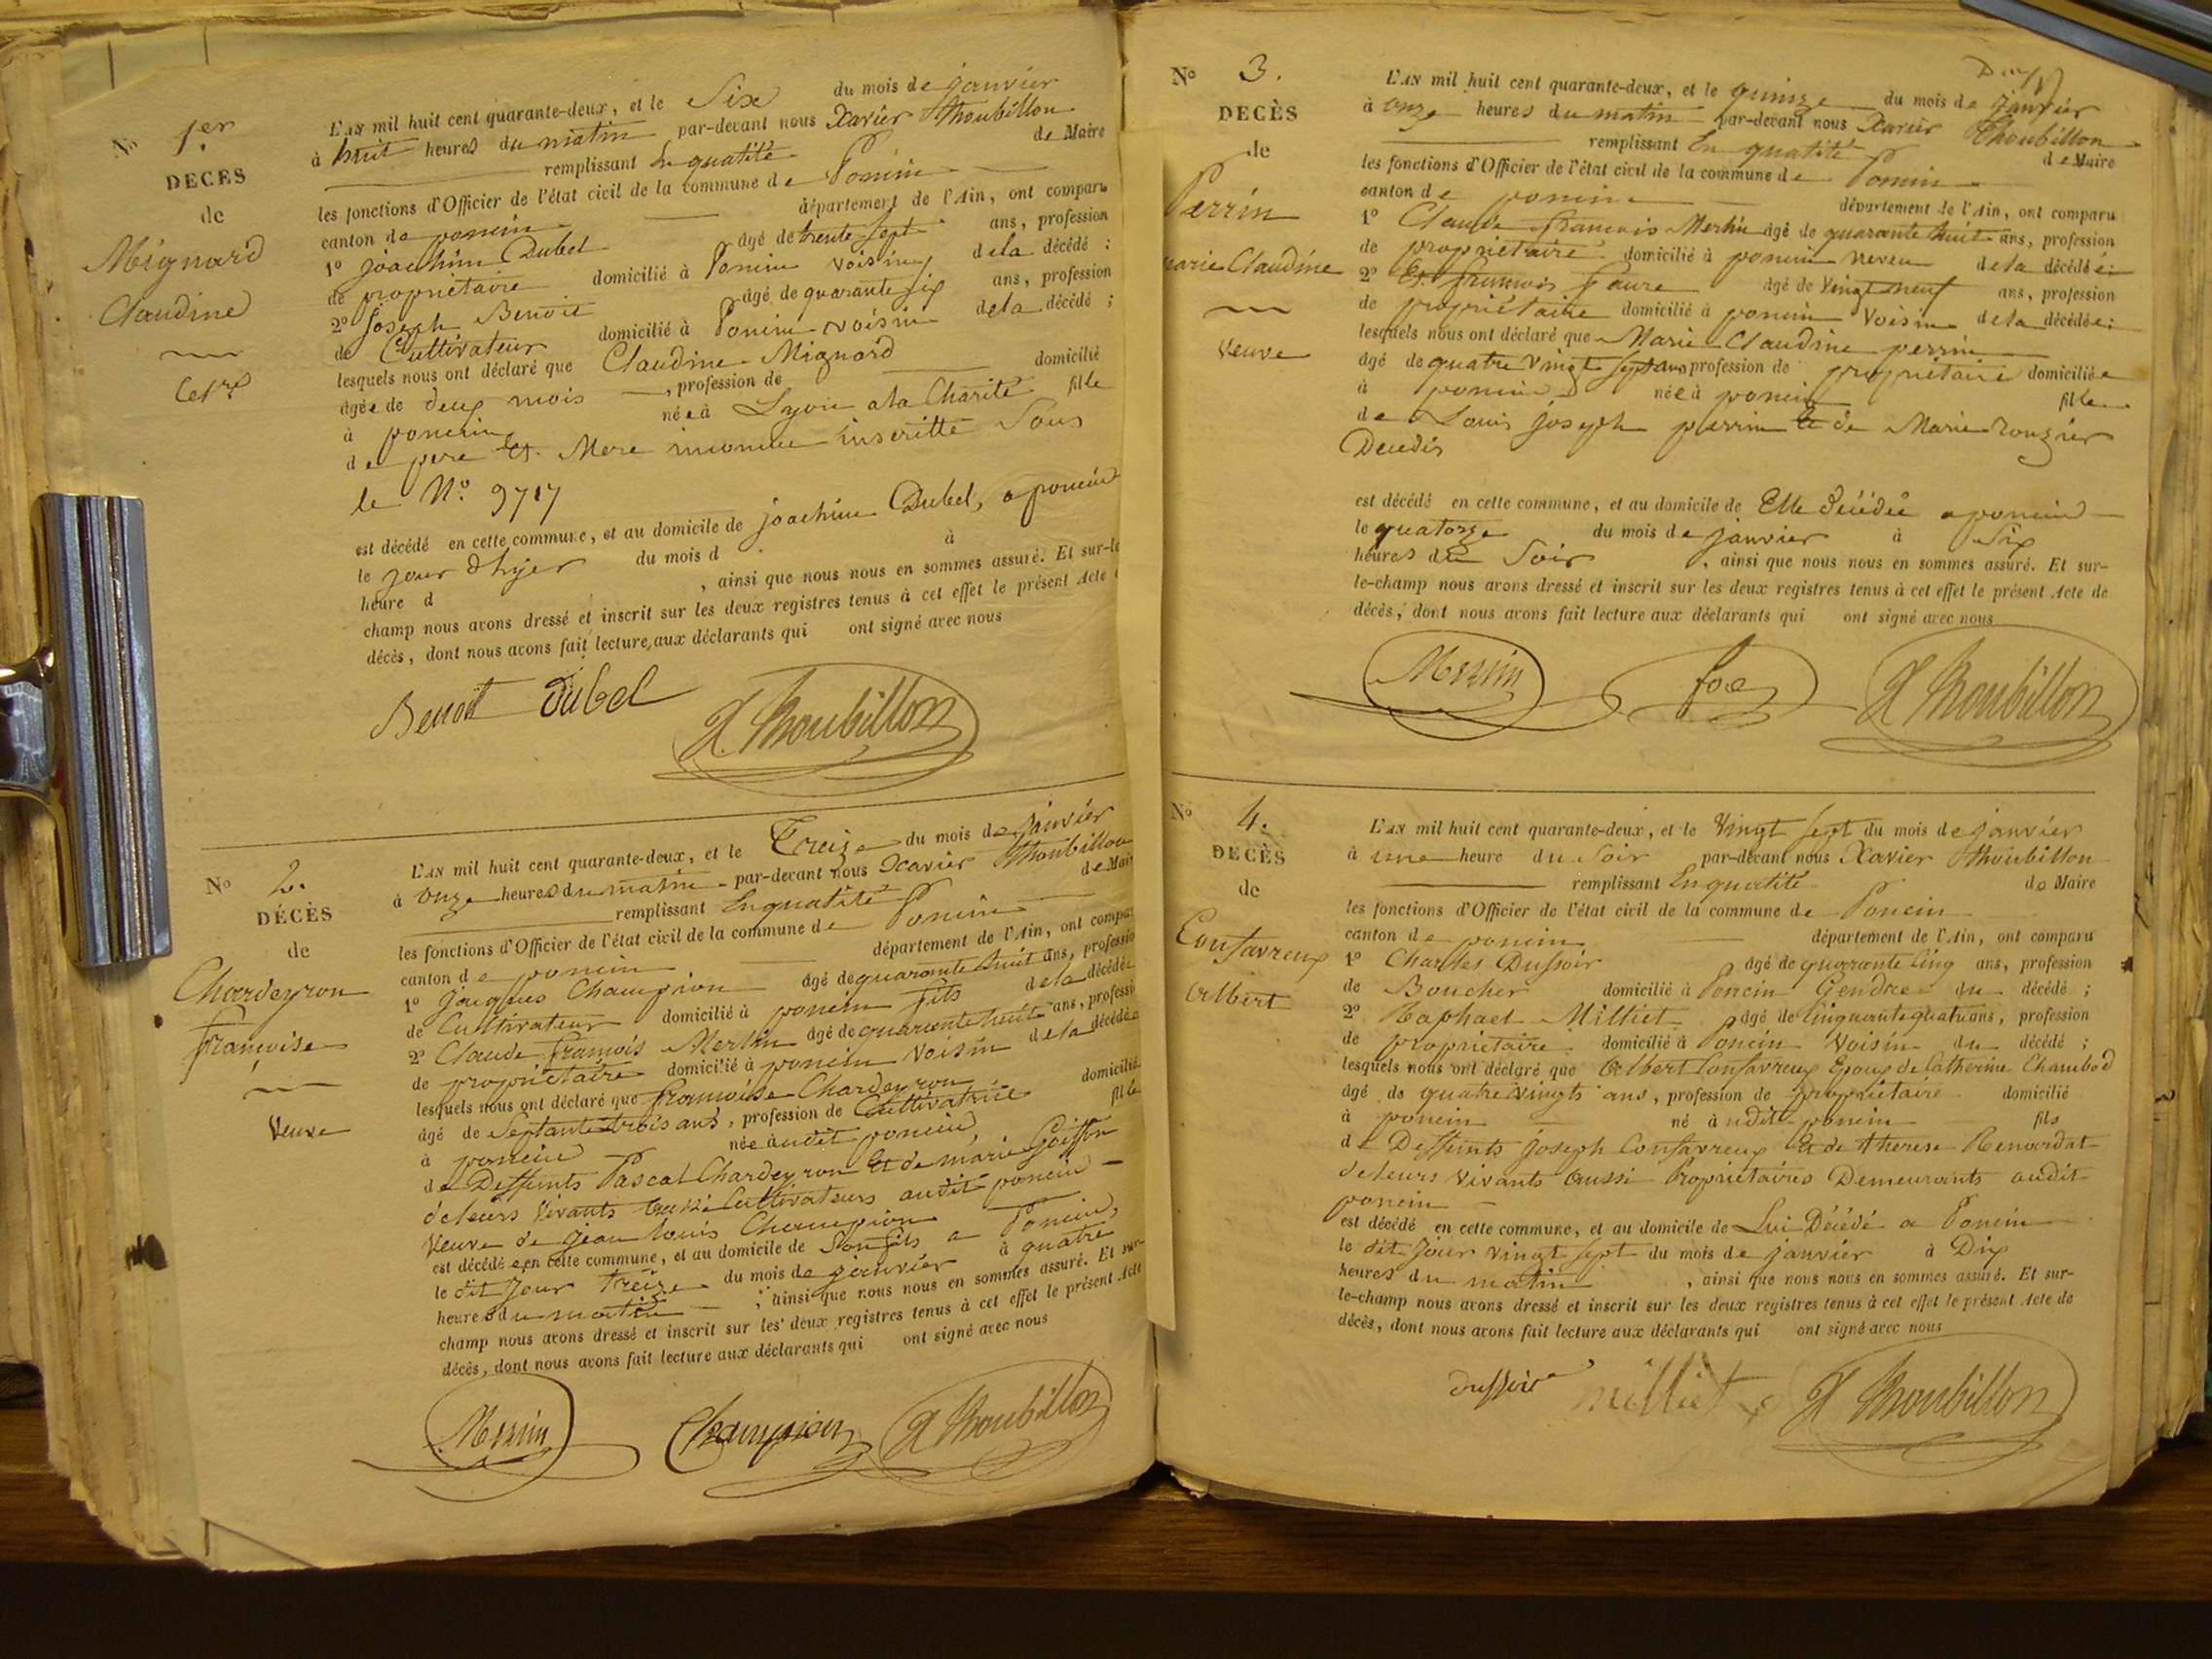 N° 1.er
DECES
de
Mignard
Claudine
L'AN mil huit cent quarante-deux, et le Six du mois de janvier
à huit heures du matin par-devant nous Xavier Thoubillon
remplissant En qualité de Maire
les fonctions d'Officier de l'état civil de la commune de Poncin
canton de poncin département de l'Ain, ont comparu
1° joachim Dubel âgé de trente sept ans, profession
de propriétaire domicilié à Poncin voisin de la décédé ;
2° Joseph Benoit âgé de quarante six ans, profession
de Cultivateur domicilié à Poncin voisin de la décédé ;
lesquels nous ont déclaré que Claudine Mignard
âgée de deux mois , profession de domicilié
à poncin née à Lyon a la Charité fille
de pere Et Mere inconnue inscritte Sous
le N° 9717
est décédé en cette commune, et au domicile de joachim Dubel, a poncin
le jour d'hyer du mois d à
heure d , ainsi que nous nous en sommes assuré. Et sur-le
champ nous avons dressé et inscrit sur les deux registres tenus à cet effet le présent Acte
décès, dont nous avons fait lecture, aux déclarants qui ont signé avec nous
Benoit Dubel X. Thoubillon
N° 2.
DÉCÈS
de
Chardeyron
françoise
Veuve
L'AN mil huit cent quarante-deux, et le Treize du mois de janvier
à onze heures du matin par-devant nous Xavier Thoubillon
remplissant En qualité de Mair
les fonctions d'Officier de l'état civil de la commune de Poncin
canton de poncin département de l'Ain, ont compar
1° jacques Champion âgé de quarante huit ans, professio
de Cultivateur domicilié à poncin fils de la décédée
2° Claude françois Merlin âgé de quarante huit ans, professi
de propriétaire domicilié à poncin Voisin de la décédée
lesquels nous ont déclaré que françoise Chardeyron
âgé de Septante trois ans, profession de Cultivatrice domicilié
à poncin née audit poncin, fille
de Deffunts Pascal Chardeyron Et de marie Goiffon
de leurs Vivants aussi Cultivateurs audit poncin
Veuve de jean louis Champion
est décédée en cette commune, et au domicile de Son fils a Poncin,
le dit jour treize du mois de janvier à quatre
heures du matin , ainsi que nous nous en sommes assuré. Et sur-
champ nous avons dressé et inscrit sur les deux registres tenus à cet effet le présent Acte
décès, dont nous avons fait lecture aux déclarants qui ont signé avec nous
Merlin Champion X Thoubillon
N° 3.
DECÈS
de
Perrin
marie Claudine
Veuve
L'AN mil huit cent quarante-deux, et le quinze du mois de janvier
à onze heures du matin par-devant nous Xavier Thoubillon
remplissant En qualité de Maire
les fonctions d'Officier de l'état civil de la commune de Poncin
canton de poncin département de l'Ain, ont comparu
1° Claude françois Merlin âgé de quarante huit ans, profession
de propriétaire domicilié à poncin neveu de la décédée ;
2° Et françois faure âgé de Vingt neuf ans, profession
de propriétaire domicilié à poncin Voisin de la décédée ;
lesquels nous ont déclaré que Marie Claudine perrin
âgé de quatre Vingt Sept ans profession de propriétaire domiciliée
à poncin née à poncin fille
de Louis joseph perrin Et de Marie rougier
Decédés
est décédé en cette commune, et au domicile de Elle décédée a poncin
le quatorze du mois de janvier à Six
heures du Soir , ainsi que nous nous en sommes assuré. Et sur-
le-champ nous avons dressé et inscrit sur les deux registres tenus à cet effet le présent Acte de
décès, dont nous avons fait lecture aux déclarants qui ont signé avec nous
Merlin X Thoubillon
N° 4.
DECÈS
de
Confavreux
Albert
L'AN mil huit cent quarante-deux, et le Vingt Sept du mois de janvier
à une heure du Soir par-devant nous Xavier Thoubillon
remplissant En qualité de Maire
les fonctions d'Officier de l'état civil de la commune de Poncin
canton de poncin département de l'Ain, ont comparu
1° Charles Dussoir âgé de quarante Cinq ans, profession
de Boucher domicilié à Poncin Gendre du décédé ;
2° Raphael Milliet âgé de Cinquante quatre ans, profession
de propriétaire domicilié à Poncin Voisin du décédé ;
lesquels nous ont déclaré que Albert Confavreux Epoux de Catherine Chambod
âgé de quatre Vingts ans, profession de propriétaire domicilié
à poncin né à udit poncin fils
de Deffunts joseph Confavreux Et de therese Renardat
de leurs Vivants Aussi Propriétaires Demeurants audit
poncin
est décédé en cette commune, et au domicile de Lui Décédé a Poncin
le dit jour vingt sept du mois de janvier à Dix
heures du matin , ainsi que nous nous en sommes assuré. Et sur-
le-champ nous avons dressé et inscrit sur les deux registres tenus à cet effet le présent Acte de
décès, dont nous avons fait lecture aux déclarants qui ont signé avec nous
dussoir milliet X Thoubillon